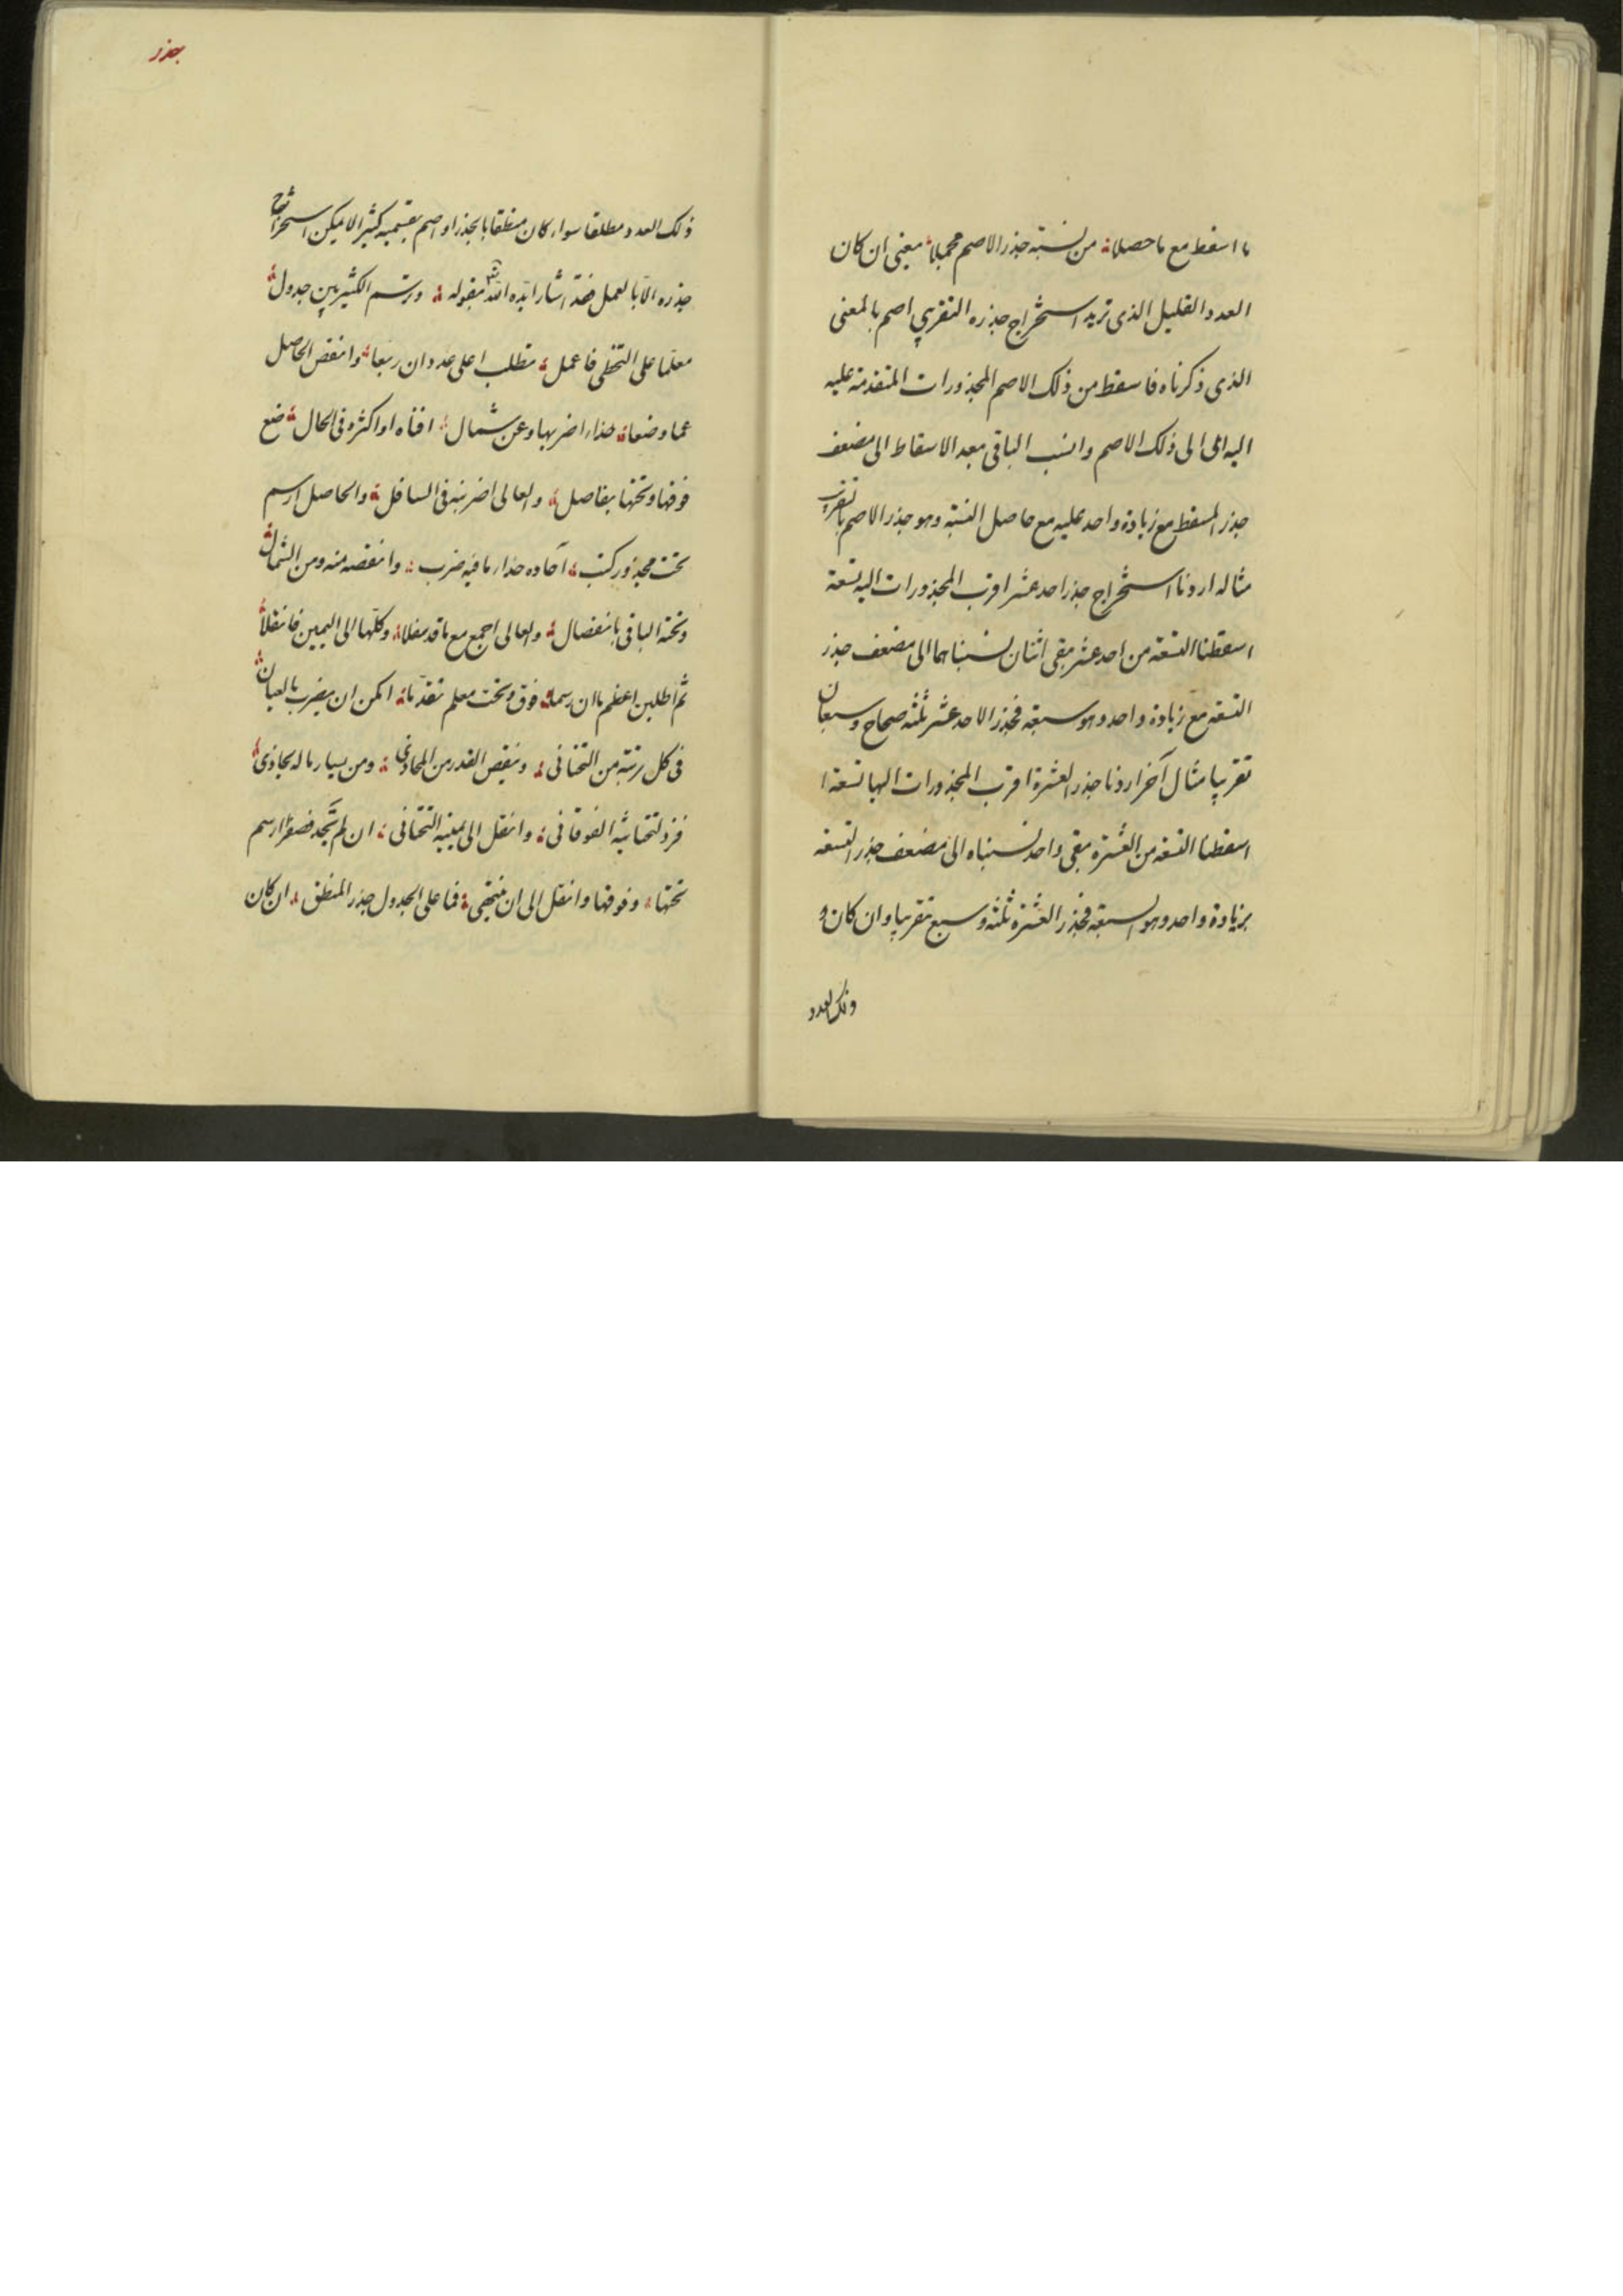 ما اسقط مع ما حصلا من نسبته جذر الاصم مجملا يعني ان كان
العدد القليل الذي تريد استخراج جذره التقريبي اصم بالمعنى
الذي ذكرناه فاسقط من ذلك الاصم المجذورات المتقدمة عليه
اليه الى الى ذلك الاصم وانسب الباقي بعد الاسقاط الى مضعف
جذر المسقط مع زيادة واحد عليه مع حاصل النسبة وهو جذر الاصم بالتقريب
مثاله اردنا استخراج جذر احد عشر اقرب المجذورات اليه تسعة
اسقطنا التسعة من احد عشر بقي اثنان نسبناهما الى مضعف جذر
التسعة مع زيادة واحد وهو سبعة فجذر الاحد عشر ثلثة صحاح وسبعان
تقريبا مثال آخر اردنا جذر العشرة اقرب المجذورات اليها تسعة
اسقطنا التسعة من العشرة بقي واحد نسبناه الى مضعف جذر التسعة
بزيادة واحد وهو السبعة فجذر العشرة ثلثة وسبع تقريبا وان كان
ذلك العدد
جذر
ذلك العدد مطلقا سواء كان منطقا بالجذر او اصم بقسميه كثيرا لا يمكن استخراج
جذره الا بالعمل فقد اشار ايده الله بقوله ورسم الكثير بين جدول
معلما على التخطي فاعمل تطلب اعلى عدد ان ربعا وانقص الحاصل
عما وضعا حذاء اضربها وعن شمال افناه او اكثره في الحال ضع
فوقها وتحتها بفاصل والعالي اضربنه في السافل والحاصل ارسم
تحت مجذور كتب آحاده حذاء ما فيه ضرب وانقصه منه ومن الشمال
وتحته الباقي بانفصال والعالي اجمع مع ما قد سفلا وكلها الى اليمين فانقلا
ثم اطلبن اعظم ما ان رسما فوق وتحت معلم تقدما امكن ان يضرب بالعيان
في كل رتبة من التحتاني وينقص القدر من المحاذي ومن يسار ما له يحاذي
فزد لتحتانيه الفوقاني وانقل الى يمينه التحتاني ان لم تجد فصفرا ارسم
تحتها وفوقها وانقل الى ان ينتهي فما على الجدول جذر المنطق ان كان